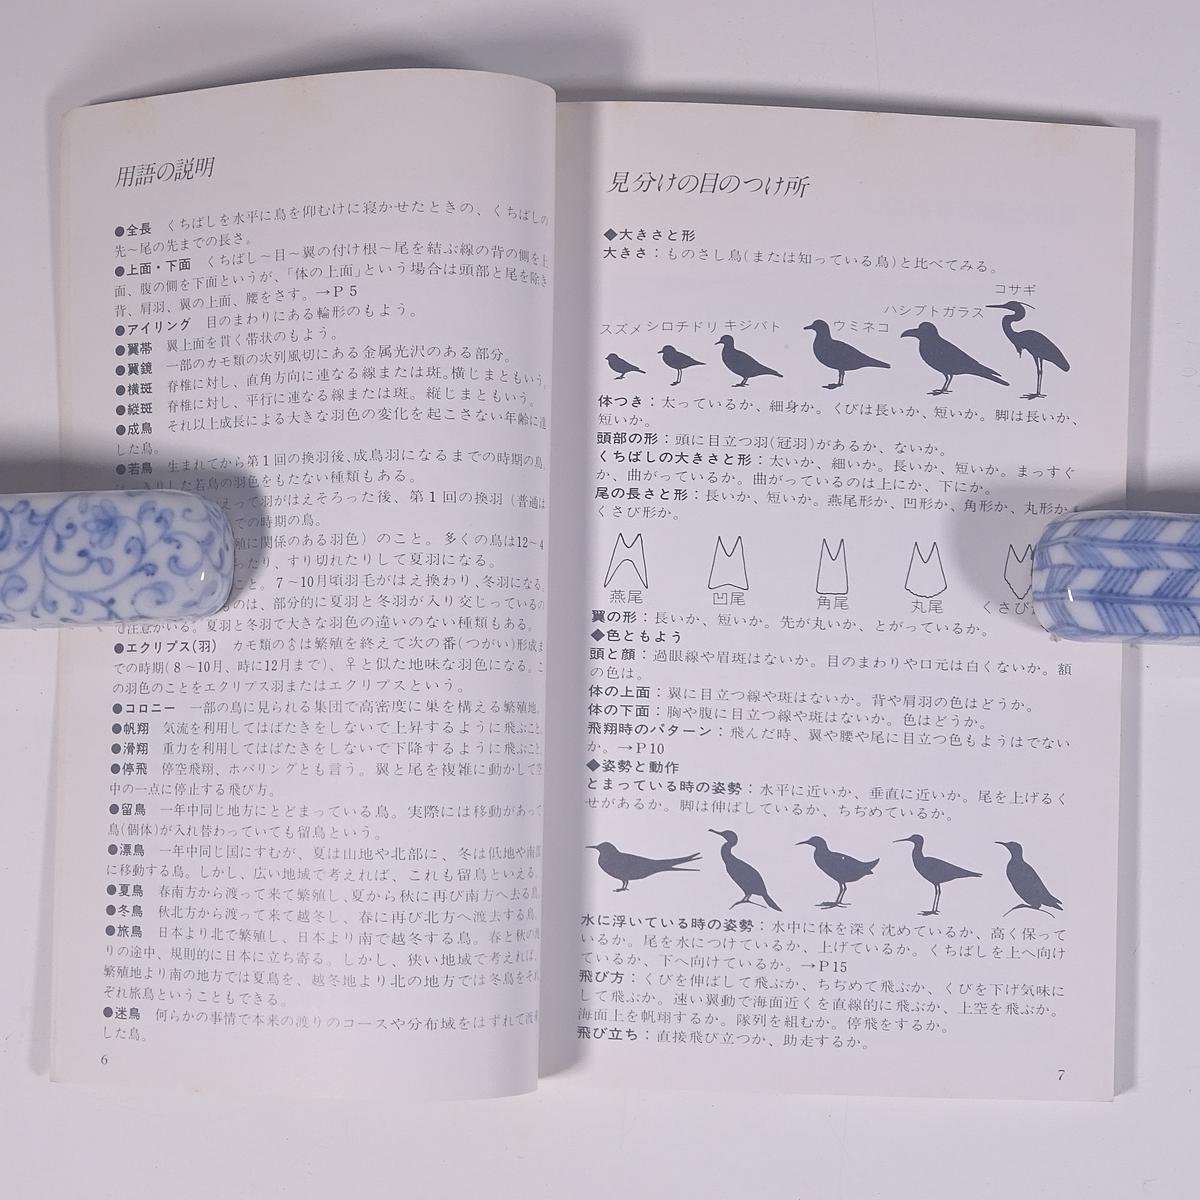 用語の説明
●全長　くちばしを水平に鳥を仰むけに寝かせたときの、くちばしの
先～尾の先までの長さ。
●上面・下面　くちばし～目～翼の付け根～尾を結ぶ線の背の側を上
面、腹の側を下面というが、「体の上面」という場合は頭部と尾を除き
背、肩羽、翼の上面、腰をさす。→P 5
●アイリング　目のまわりにある輪形のもよう。
●翼帯　翼上面を貫く帯状のもよう。
●翼鏡　一部のカモ類の次列風切にある金属光沢のある部分。
●横斑　脊椎に対し、直角方向に連なる線または斑。横じまともいう。
●縦斑　脊椎に対し、平行に連なる線または斑。縦じまともいう。
●成鳥　それ以上成長による大きな羽色の変化を起こさない年齢に達
した鳥。
●若鳥　生まれてから第1回の換羽後、成鳥羽になるまでの時期の鳥。
した若鳥の羽色をもたない種類もある。
えって羽がはえそろった後、第1回の換羽（普通は
での時期の鳥。
に関係のある羽色）のこと。多くの鳥は12～4
ったり、すり切れたりして夏羽になる。
こと。7～10月頃羽毛がはえ換わり、冬羽になる。
ものは、部分的に夏羽と冬羽が入り交じっているの
で注意がいる。夏羽と冬羽で大きな羽色の違いのない種類もある。
●エクリプス(羽)　カモ類の♂は繁殖を終えて次の番(つがい)形成ま
での時期(8～10月、時に12月まで)、♀と似た地味な羽色になる。こ
の羽色のことをエクリプス羽またはエクリプスという。
●コロニー　一部の鳥に見られる集団で高密度に巣を構える繁殖地。
●帆翔　気流を利用してはばたきをしないで上昇するように飛ぶこと。
●滑翔　重力を利用してはばたきをしないで下降するように飛ぶこと。
●停飛　停空飛翔、ホバリングとも言う。翼と尾を複雑に動かして空
中の一点に停止する飛び方。
●留鳥　一年中同じ地方にとどまっている鳥。実際には移動があって
鳥(個体)が入れ替わっていても留鳥という。
●漂鳥　一年中同じ国にすむが、夏は山地や北部に、冬は低地や南部
に移動する鳥。しかし、広い地域で考えれば、これも留鳥といえる。
●夏鳥　春南方から渡って来て繁殖し、夏から秋に再び南方へ去る鳥。
●冬鳥　秋北方から渡って来て越冬し、春に再び北方へ渡去する鳥。
●旅鳥　日本より北で繁殖し、日本より南で越冬する鳥。春と秋の渡
りの途中、規則的に日本に立ち寄る。しかし、狭い地域で考えれば、
繁殖地より南の地方では夏鳥を、越冬地より北の地方では冬鳥をそれ
ぞれ旅鳥ということもできる。
●迷鳥　何らかの事情で本来の渡りのコースや分布域をはずれて渡来
した鳥。
6
見分けの目のつけ所
◆大きさと形
大きさ：ものさし鳥(または知っている鳥)と比べてみる。
コサギ
ハシブトガラス
スズメ シロチドリ キジバト ウミネコ
体つき：太っているか、細身か。くびは長いか、短いか。脚は長いか、
短いか。
頭部の形：頭に目立つ羽(冠羽)があるか、ないか。
くちばしの大きさと形：太いか、細いか。長いか、短いか。まっすぐ
か、曲がっているか。曲がっているのは上にか、下にか。
尾の長さと形：長いか、短いか。燕尾形か、凹形か、角形か、丸形か、
くさび形か。
燕尾 凹尾 角尾 丸尾 くさび
翼の形：長いか、短いか。先が丸いか、とがっているか。
◆色ともよう
頭と顔：過眼線や眉斑はないか。目のまわりや口元は白くないか。額
の色は。
体の上面：翼に目立つ線や斑はないか。背や肩羽の色はどうか。
体の下面：胸や腹に目立つ線や斑はないか。色はどうか。
飛翔時のパターン：飛んだ時、翼や腰や尾に目立つ色もようはでない
か。→P10
◆姿勢と動作
とまっている時の姿勢：水平に近いか、垂直に近いか。尾を上げるく
せがあるか。脚は伸ばしているか、ちぢめているか。
水に浮いている時の姿勢：水中に体を深く沈めているか、高く保って
いるか。尾を水につけているか、上げているか。くちばしを上へ向け
ているか、下へ向けているか。→P15
飛び方：くびを伸ばして飛ぶか、ちぢめて飛ぶか、くびを下げ気味に
して飛ぶか。速い翼動で海面近くを直線的に飛ぶか、上空を飛ぶか。
海面上を帆翔するか。隊列を組むか。停飛をするか。
飛び立ち：直接飛び立つか、助走するか。
7